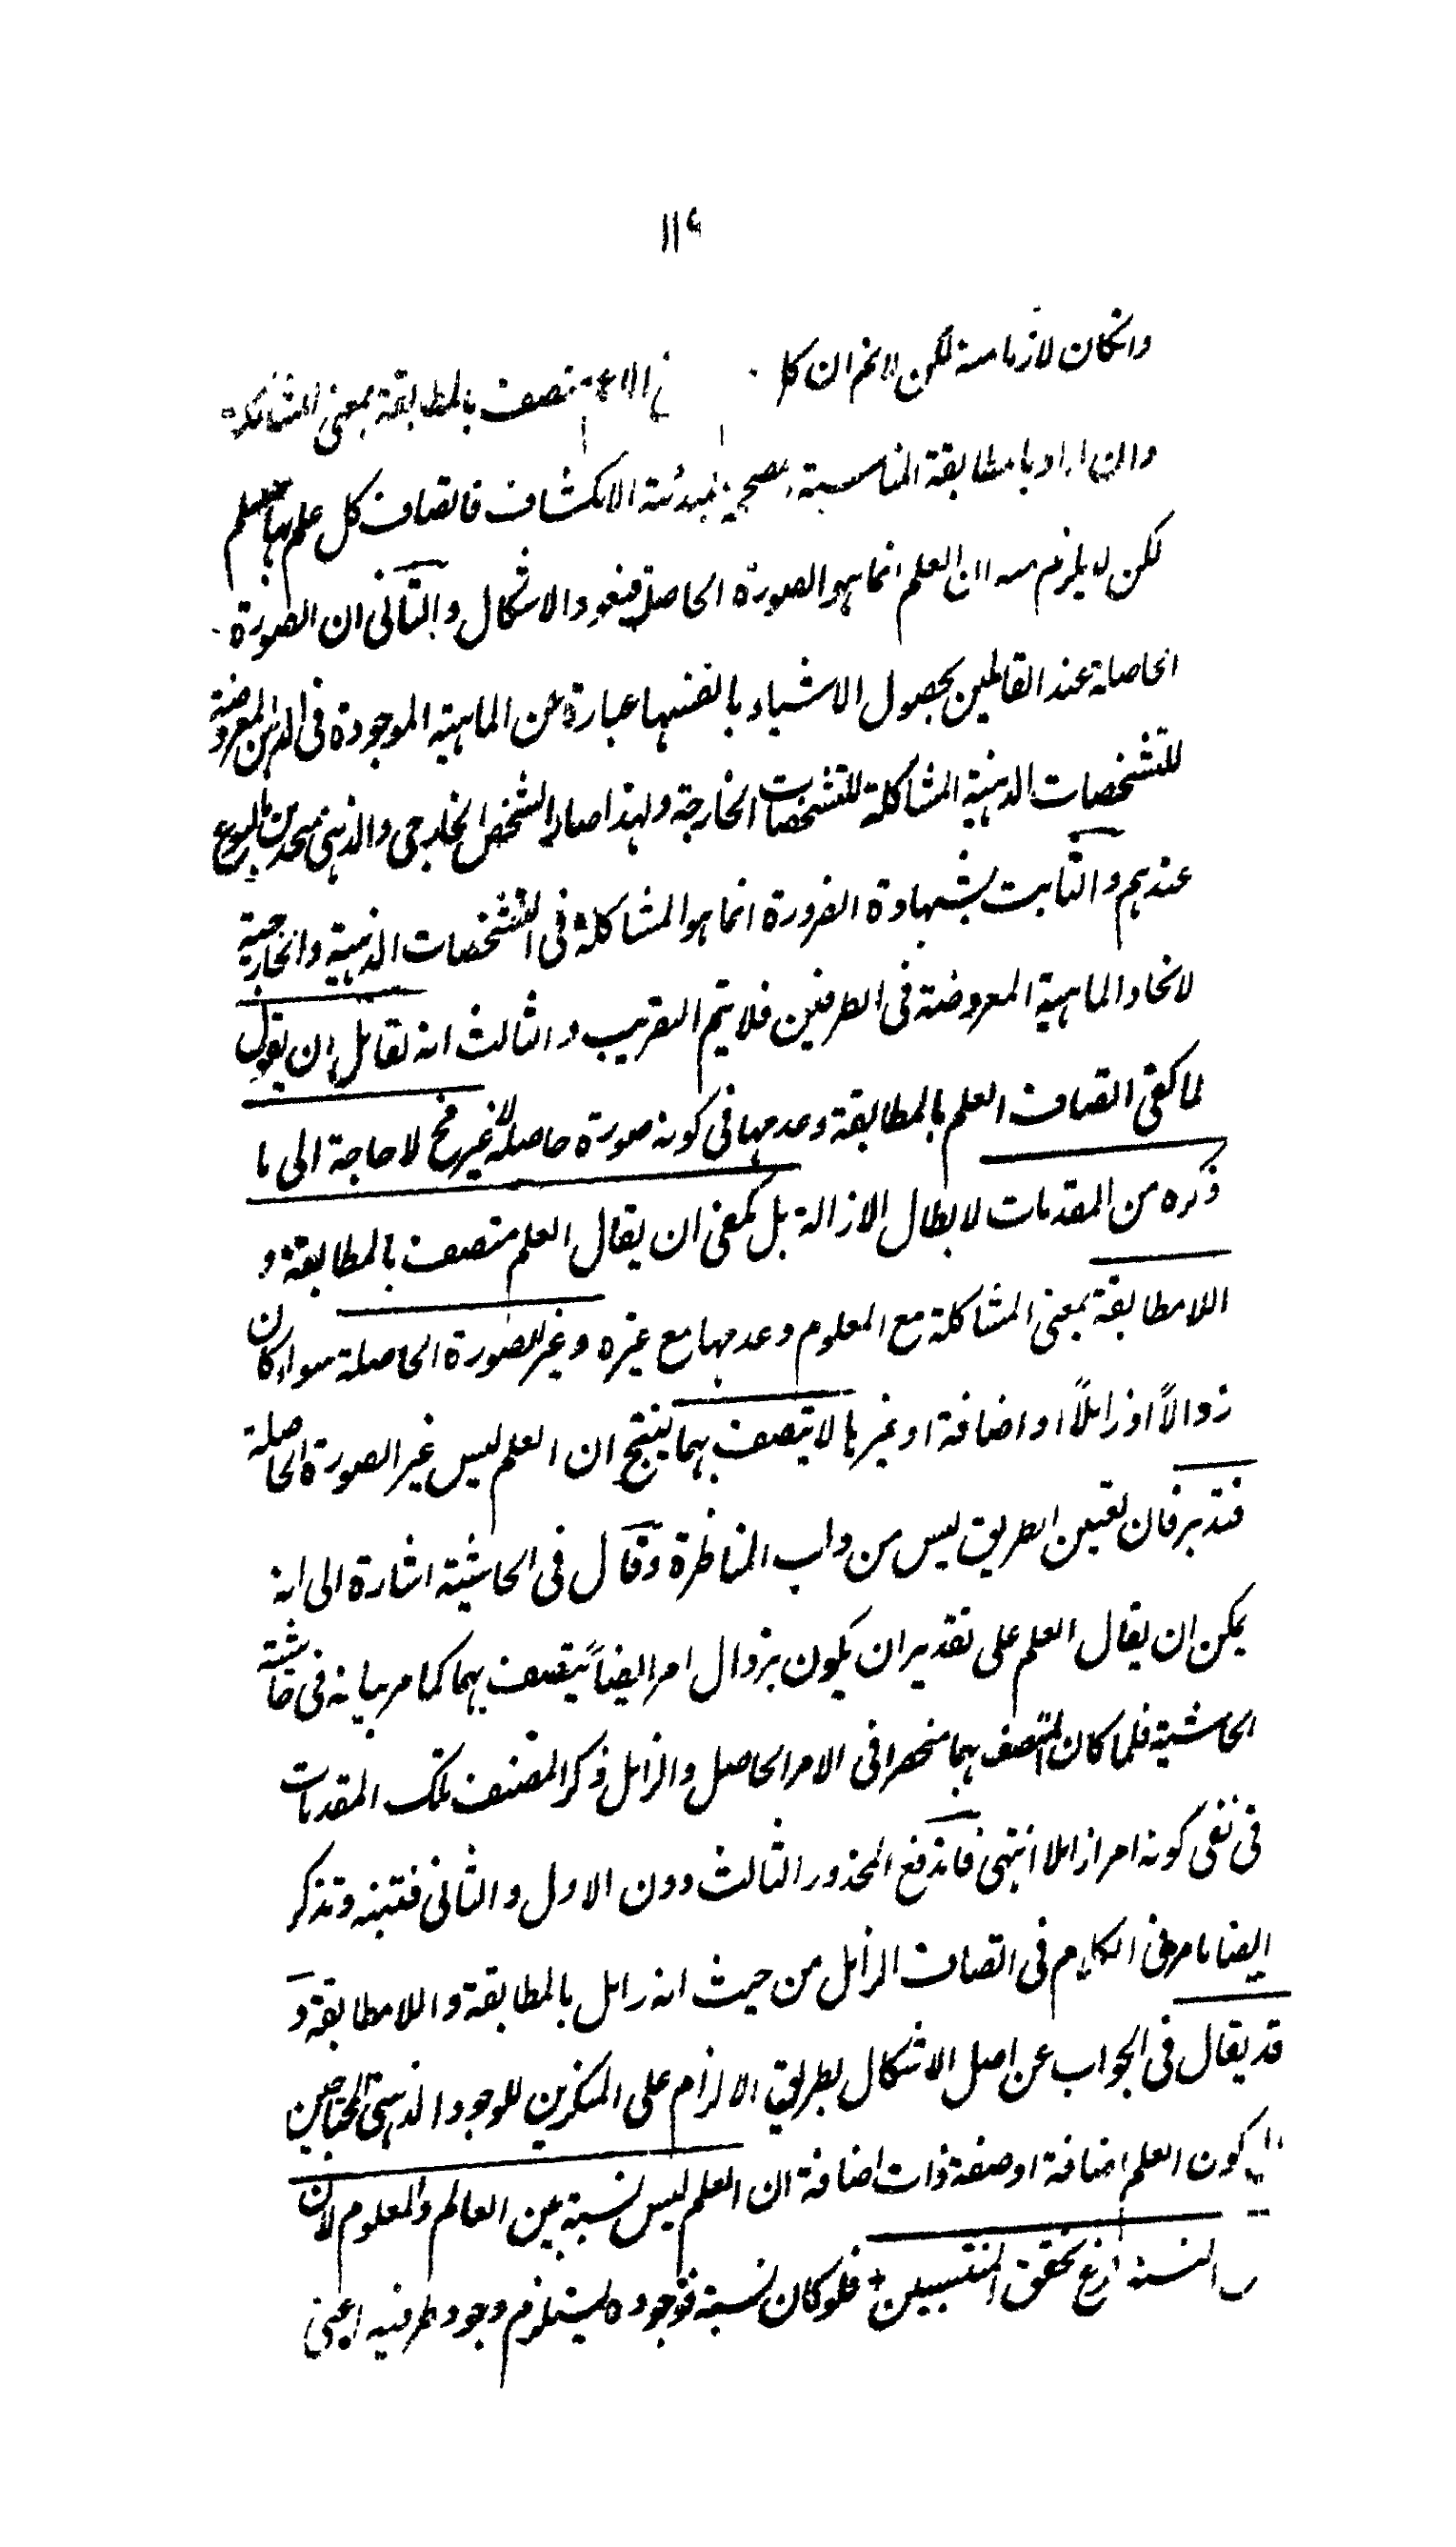 ١١٩
وانكان لازما منه لكن لا نم ان كل الا متصف بالمطابقة بمعنى المشاكلة
وان اراد بالمطابقة المناسبة المصححة لمبدئية الانكشاف فاتصاف كل علم بها مسلم
لكن لا يلزم منه ان العلم انما هو الصورة الحاصلة فيعود الاشكال والثانى ان الصورة
الحاصلة عند القائلين بحصول الاشياء بانفسها عبارة عن الماهية الموجودة فى الذهن المعروضة
للتشخصات الذهنية المشاكلة للتشخصات الخارجة ولهذا صار الشخص الخارجى والذهنى متحدين بالنوع
عندهم والثابت بشهادة الضرورة انما هو المشاكلة فى التشخصات الذهنية والخارجية
لاتحاد الماهية المعروضة فى الطرفين فلا يتم التقريب والثالث انه لقائل ان يقول
لما كفى اتصاف العلم بالمطابقة وعدمها فى كونه صورة حاصلة لا غير فح لا حاجة الى ما
ذكره من المقدمات لابطال الازالة بل يكفى ان يقال العلم متصف بالمطابقة و
اللامطابقة بمعنى المشاكلة مع المعلوم وعدمها مع غيره وغير الصورة الحاصلة سواء كان
زوالاً او زائلاً او اضافة او غيرها لا يتصف بهما ينتج ان العلم ليس غير الصورة الحاصلة
فتدبر فان تعيين الطريق ليس من داب المناظرة وقال فى الحاشية اشارة الى انه
يمكن ان يقال العلم على تقدير ان يكون بزوال امر ايضاً يتصف بهما كما مر بيانه فى حاشية
الحاشية فلما كان المتصف بهما منحصرا فى الامر الحاصل والزائل ذكر المصنف تلك المقدمات
فى نفى كونه امرا زائلا انتهى فاندفع المحذور الثالث دون الاول والثانى فتنبه وتذكر
ايضا ما مر فى الكلام فى اتصاف الزائل من حيث انه زائل بالمطابقة واللامطابقة و
قد يقال فى الجواب عن اصل الاشكال بطريق الالزام على المنكرين للوجود الذهنى المختاصين
كون العلم اضافة او صفة ذات اضافة ان العلم ليس نسبة بين العالم والمعلوم لان
النسبة فرع تحقق المنتسبين فلو كان نسبة فوجوده يستلزم وجود طرفيه اعنى